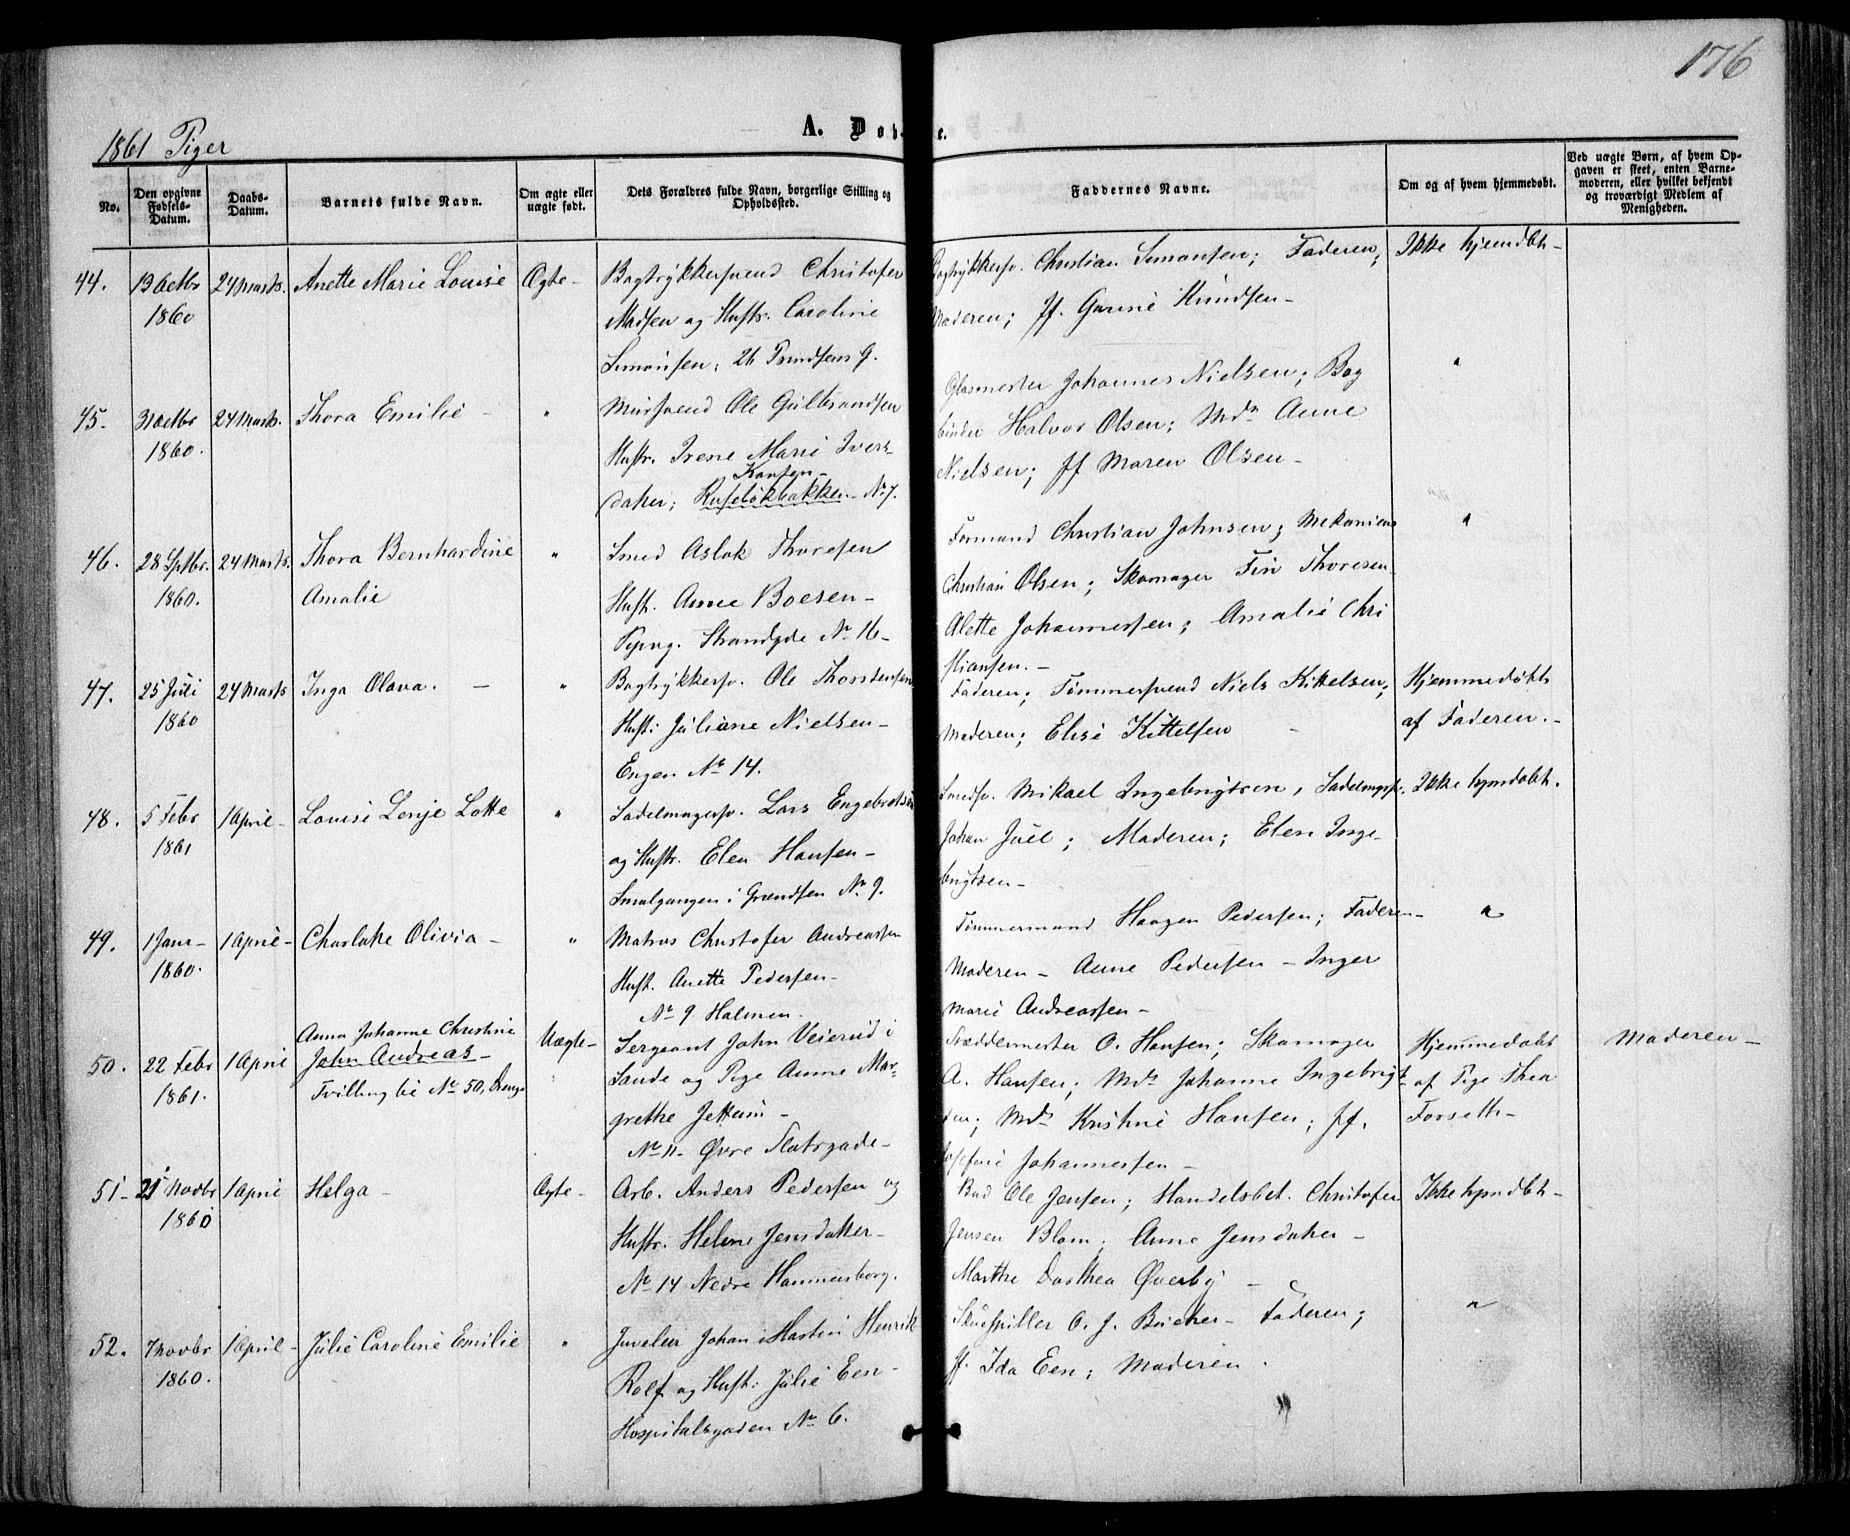 176
1861 Piger
A. Døb e.
No.
Den opgivne Fødsels-Datum.
Daabs-Datum.
Barnets fulde Navn.
Om ægte eller uægte født.
Dets Forældres fulde Navn, borgerlige Stilling og Opholdssted.
Faddernes Navne.
Om og af hvem hjemmedøbt.
Ved uægte Børn, af hvem Opgaven er skeet, enten Barnemoderen, eller hvilket bekjendt og troværdigt Medlem af Menigheden.
44. 19 Octbr 24 Marts. Anette Marie Louise Ægte- Bogtrykkersvend Christofer
1860 Madsen og Hustr. Caroline
Simonsen; 26 Prindsens G.
Bogtrykkersv. Christian Simonsen; Faderen; Ikke hjemdbt-
Moderen; Jf. Gurine Knudsen-
45. 31 Octbr 24 Marts. Thora Emilie - " Mursvend Ole Gulbrandsen
1860. Hustr. Irene Marie Ivers-
Karsten-
datter; Ruseløkbakken- No 7.
Glasmester Johannes Nielsen; Bog "
binder Halvor Olsen; Md. Anne
Nielsen; Jf Maren Olsen-
46. 28 Septbr. 24 Marts. Thora Bernhardine " Smed Aslak Thoresen
1860. Amalie Hust. Anne Boesen-
Pipvg. Strandgde No 16-
Formand Christian Johnsen; Mekanicus "
Christian Olsen; Skomager Fin Thoresen-
Alette Johannessen; Amalie Chri
stiansen.-
47. 25 Juli 24 Marts Inga Olava. - " Bogtrykkersv. Ole Thorstensen
1860 Hust: Juliane Nielsen-
Engen No 14.
Faderen; Tømmersvend Niels Kittelsen; Hjemmedøbt
Moderen; Elise Kittelsen - af Faderen.-
48. 5 Febr 1 April- Louise Lenje Lotte " Sadelmagersv. Lars Engebretsen
1861 og Hustr. Elen Hansen-
Smalgangen i Grændsen No 9.
Smedsv. Mikael Ingebrigtsen, Sadelmagsv. Ikke hjmdøbt.
Johan Juel; Moderen; Elen Inge-
brigtsen-
49. 1 Janr- 1 April- Charlotte Olivia- " Matros Christofer Andreassen
1860. Hust. Anette Pedersen-
No 9 Holmen.
Tømmermand Haagen Pedersen; Faderen- "
Moderen- Anne Pedersen- Inger
Marie Andreassen-
Anna Johanne Christine
50. 22 Febr 1 April John Andreas- Uægte- Sergeant John Veierud i
1861. Tvilling til No 50, Drenge Sande og Pige Anne Mar-
grethe Jettum-
No 11- Øvre Slotsgade-
O. Hansen; Skomager Hjemmedøbt Moderen-
A. Hansen; Md. Johanne Ingebrigt- af Pige Thea
sen; Md. Kristine Hansen; Jf. Forseth-
Josefine Johannessen-
51- 21 Novbr 1 April Helga- Ægte- Arb. Anders Pedersen og
1860 Hustr. Helene Jensdatter-
No 14 Nedre Hammersborg.
Bud Ole Jensen; Handelsbet. Christofer Ikke hjmdbt-
Jensen Blom; Anne Jensdatter-
Marthe Dorthea Øverby-
52. 7 Novbr 1 April- Julie Caroline Emilie " Juveler Johan Martin Henrik
1860. Rolf og Hust: Julie Een-
Hospitalsgaden No 6.
Skuespiller O. J. Bucher- Faderen; "
Jf. Ida Een; Moderen.